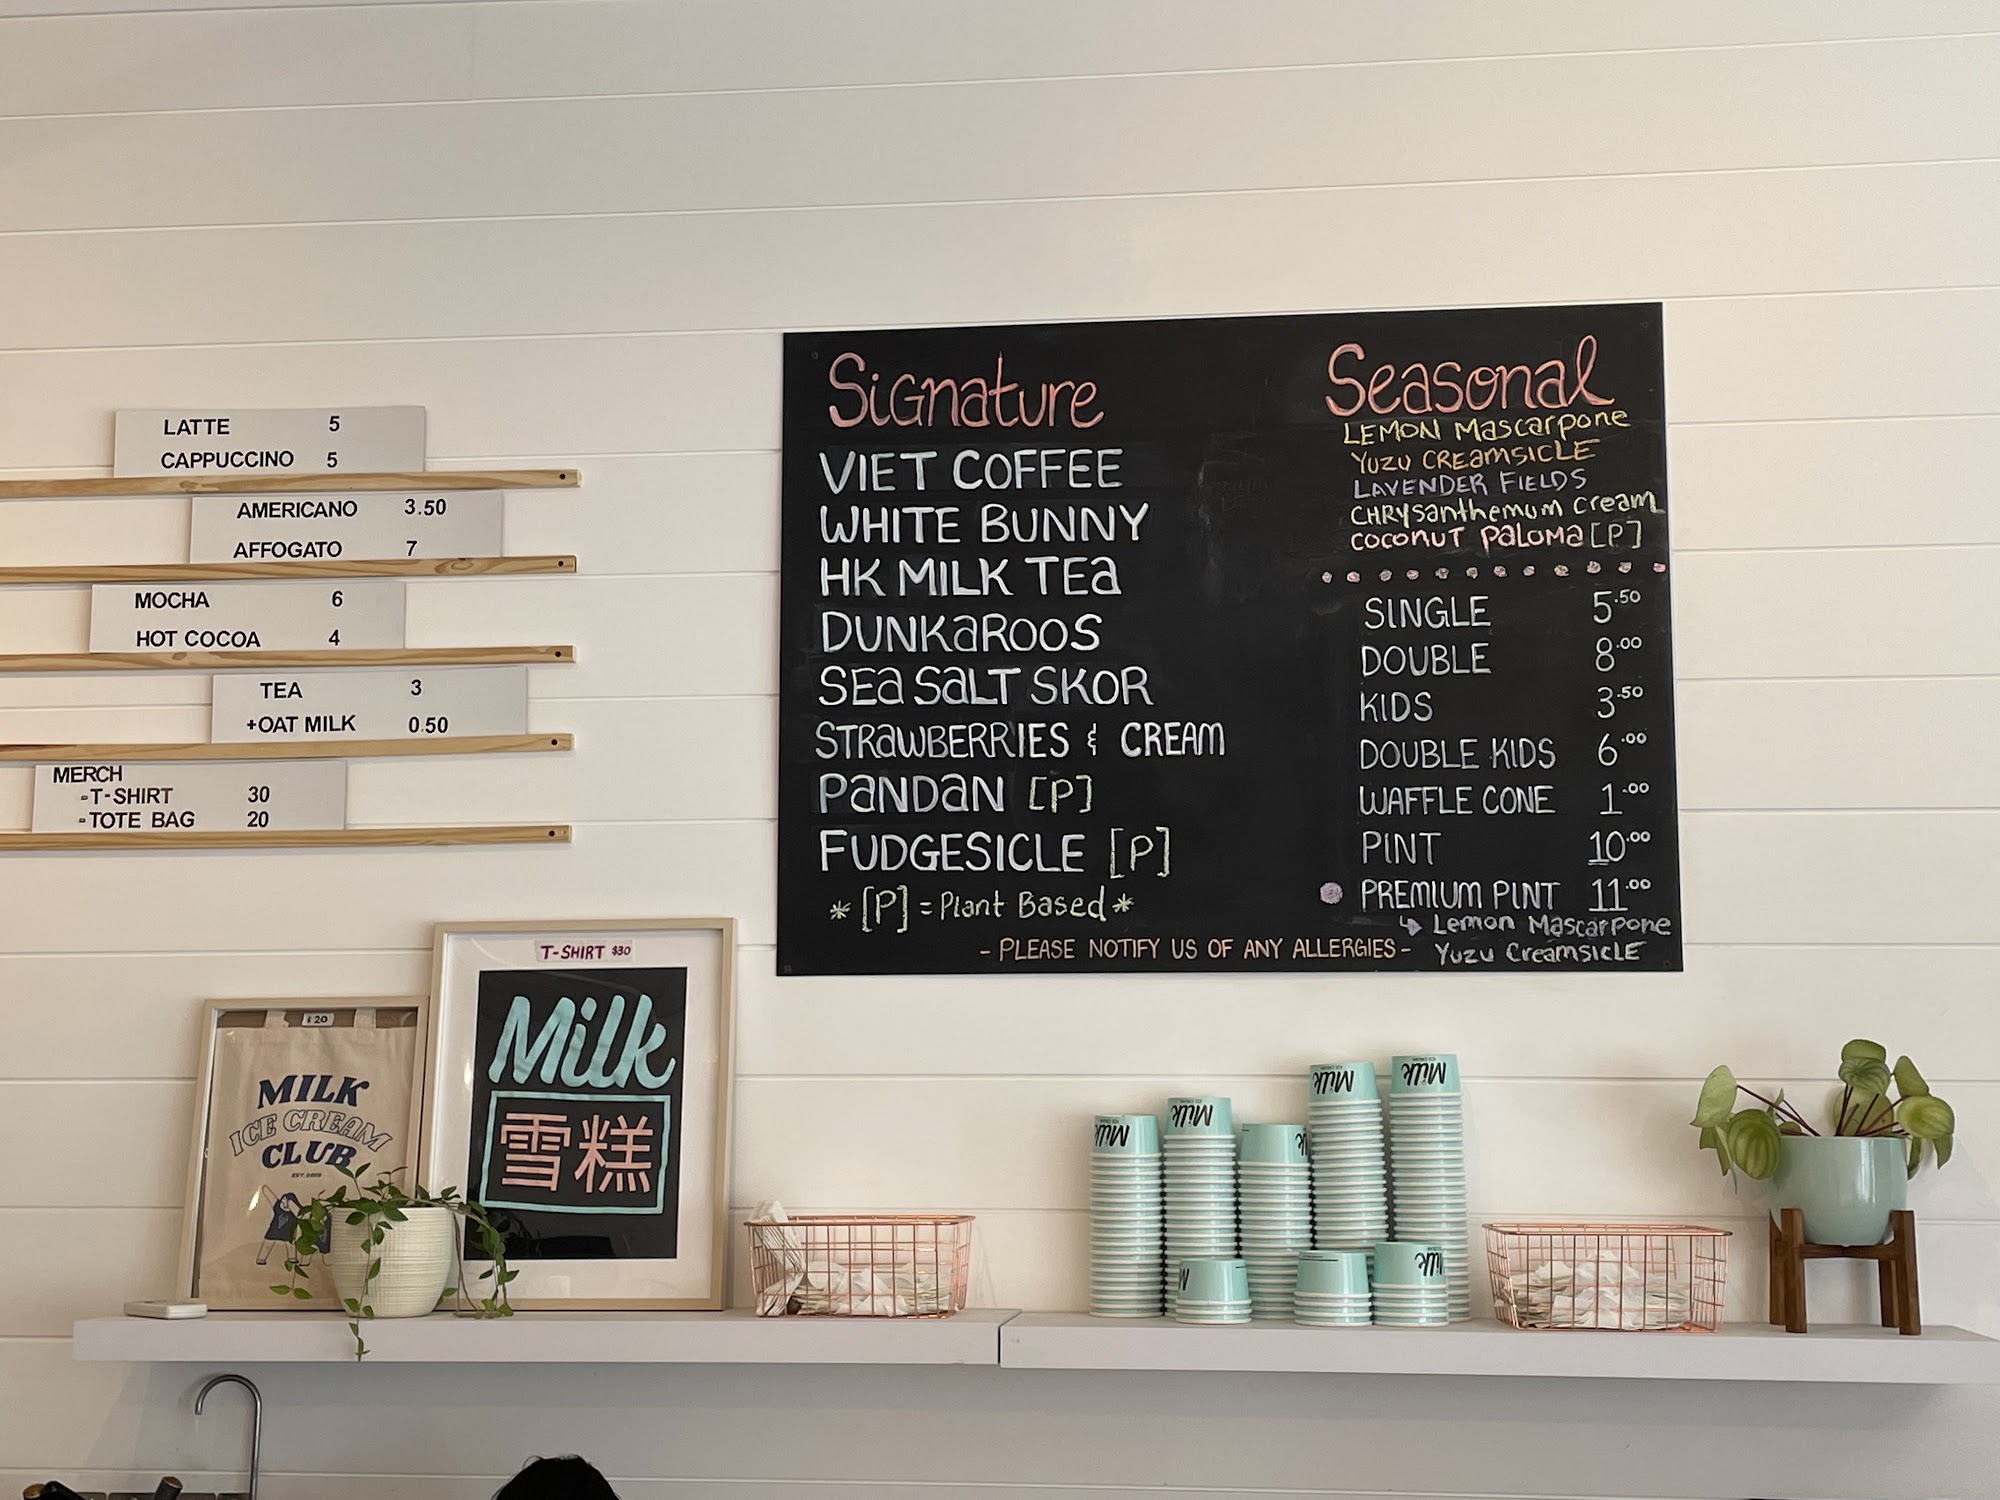 LATTE 5
CAPPUCCINO 5
AMERICANO 3.50
AFFOGATO 7
MOCHA 6
HOT COCOA 4
TEA 3
+OAT MILK 0.50
MERCH
-T-SHIRT 30
-TOTE BAG 20
Signature
VIET COFFEE
WHITE BUNNY
HK MILK TEa
DUNKaROOS
SEa SaLT SKOR
STRaWBERRIES & CREAM
PaNDaN [P]
FUDGESICLE [P]
*[P] = Plant Based*
Seasonal
LEMON Mascarpone
YUZU CREAMSICLE
LAVENDER FIELDS
CHRYsanthemum Cream
COCONUT PaLOMa [P]
SINGLE 5.50
DOUBLE 8.00
KIDS 3.50
DOUBLE KIDS 6.00
WAFFLE CONE 1.00
PINT 10.00
PREMIUM PINT 11.00
↳ Lemon Mascarpone
Yuzu CreamsicLE
- PLEASE NOTIFY US OF ANY ALLERGIES -
$20
MILK
ICE CREAM
CLUB
T-SHIRT $30
Milk
雪糕
Milk
Milk
Milk
Milk
Milk